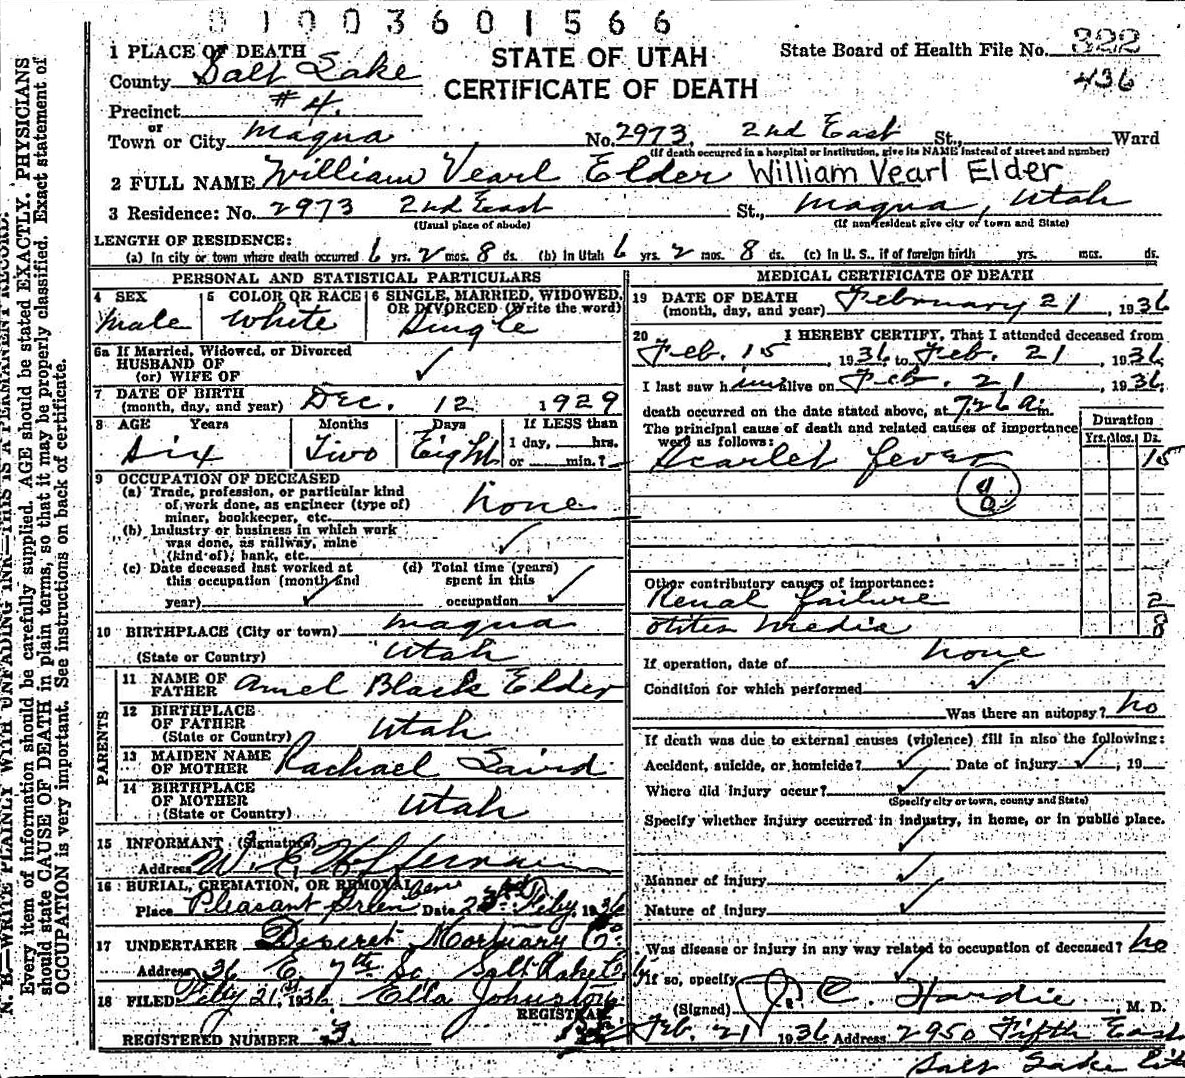 0 1 0 0 3 6 0 1 5 6 6
STATE OF UTAH
CERTIFICATE OF DEATH
State Board of Health File No. 322
436
1 PLACE OF DEATH
County Salt Lake
Precinct #4.
or
Town or City Magna No. 2973. 2nd East St., Ward
(If death occurred in a hospital or institution, give its NAME instead of street and number)
2 FULL NAME William Vearl Elder William Vearl Elder
3 Residence: No. 2973 2nd East St., Magna, Utah
(Usual place of abode) (If non-resident give city or town and State)
LENGTH OF RESIDENCE:
(a) In city or town where death occurred 6 yrs. 2 mos. 8 ds. (b) In Utah 6 yrs. 2 mos. 8 ds. (c) In U. S., if of foreign birth yrs. mos. ds.
PERSONAL AND STATISTICAL PARTICULARS
4 SEX
Male
5 COLOR OR RACE
White
6 SINGLE, MARRIED, WIDOWED, OR DIVORCED (Write the word)
Single
6a If Married, Widowed, or Divorced
HUSBAND OF
(or) WIFE OF
7 DATE OF BIRTH
(month, day, and year) Dec. 12 1929
8 AGE Years Months Days If LESS than
Six Two Eight 1 day, hrs.
or min.?
9 OCCUPATION OF DECEASED
(a) Trade, profession, or particular kind
of work done, as engineer (type of)
miner, bookkeeper, etc. None
(b) Industry or business in which work
was done, as railway, mine
(kind of); bank, etc.
(c) Date deceased last worked at
this occupation (month and
year)
(d) Total time (years)
spent in this
occupation
10 BIRTHPLACE (City or town) Magna
(State or Country) Utah
PARENTS
11 NAME OF
FATHER Amel Black Elder
12 BIRTHPLACE
OF FATHER
(State or Country) Utah
13 MAIDEN NAME
OF MOTHER Rachael Laird
14 BIRTHPLACE
OF MOTHER
(State or Country) Utah
15 INFORMANT (Signature)
Address W. E.
16 BURIAL, CREMATION, OR REMOVAL
Place Pleasant Green Cem Date Feby, 1936
17 UNDERTAKER Deseret Mortuary Co
Address 36 E. 7th So. Salt Lake City
18 FILED: Feby 21, 1936 Ella Johnston
REGISTRAR
REGISTERED NUMBER 3.
MEDICAL CERTIFICATE OF DEATH
19 DATE OF DEATH
(month, day, and year) February 21, 1936
20 I HEREBY CERTIFY, That I attended deceased from
Feb. 15, 1936 to Feb. 21, 1936
I last saw him alive on Feb. 21, 1936
death occurred on the date stated above, at 7:26 a.m.
The principal cause of death and related causes of importance
were as follows:
Duration
Yrs. Mos. Ds.
Scarlet fever 15
Other contributory causes of importance:
Renal failure 2
Otitis Media 8
If operation, date of none
Condition for which performed
Was there an autopsy? no
If death was due to external causes (violence) fill in also the following:
Accident, suicide, or homicide? Date of injury , 19
Where did injury occur?
(Specify city or town, county and State)
Specify whether injury occurred in industry, in home, or in public place.
Manner of injury
Nature of injury
Was disease or injury in any way related to occupation of deceased? no
If so, specify
(Signed) J. C. Hardie M. D.
Feb. 21 1936 Address 2950 Fifth East
Salt Lake City
N. B.—WRITE PLAINLY WITH UNFADING INK—THIS IS A PERMANENT RECORD.
Every item of information should be carefully supplied. AGE should be stated EXACTLY. PHYSICIANS
should state CAUSE OF DEATH in plain terms, so that it may be properly classified. Exact statement of
OCCUPATION is very important. See instructions on back of certificate.